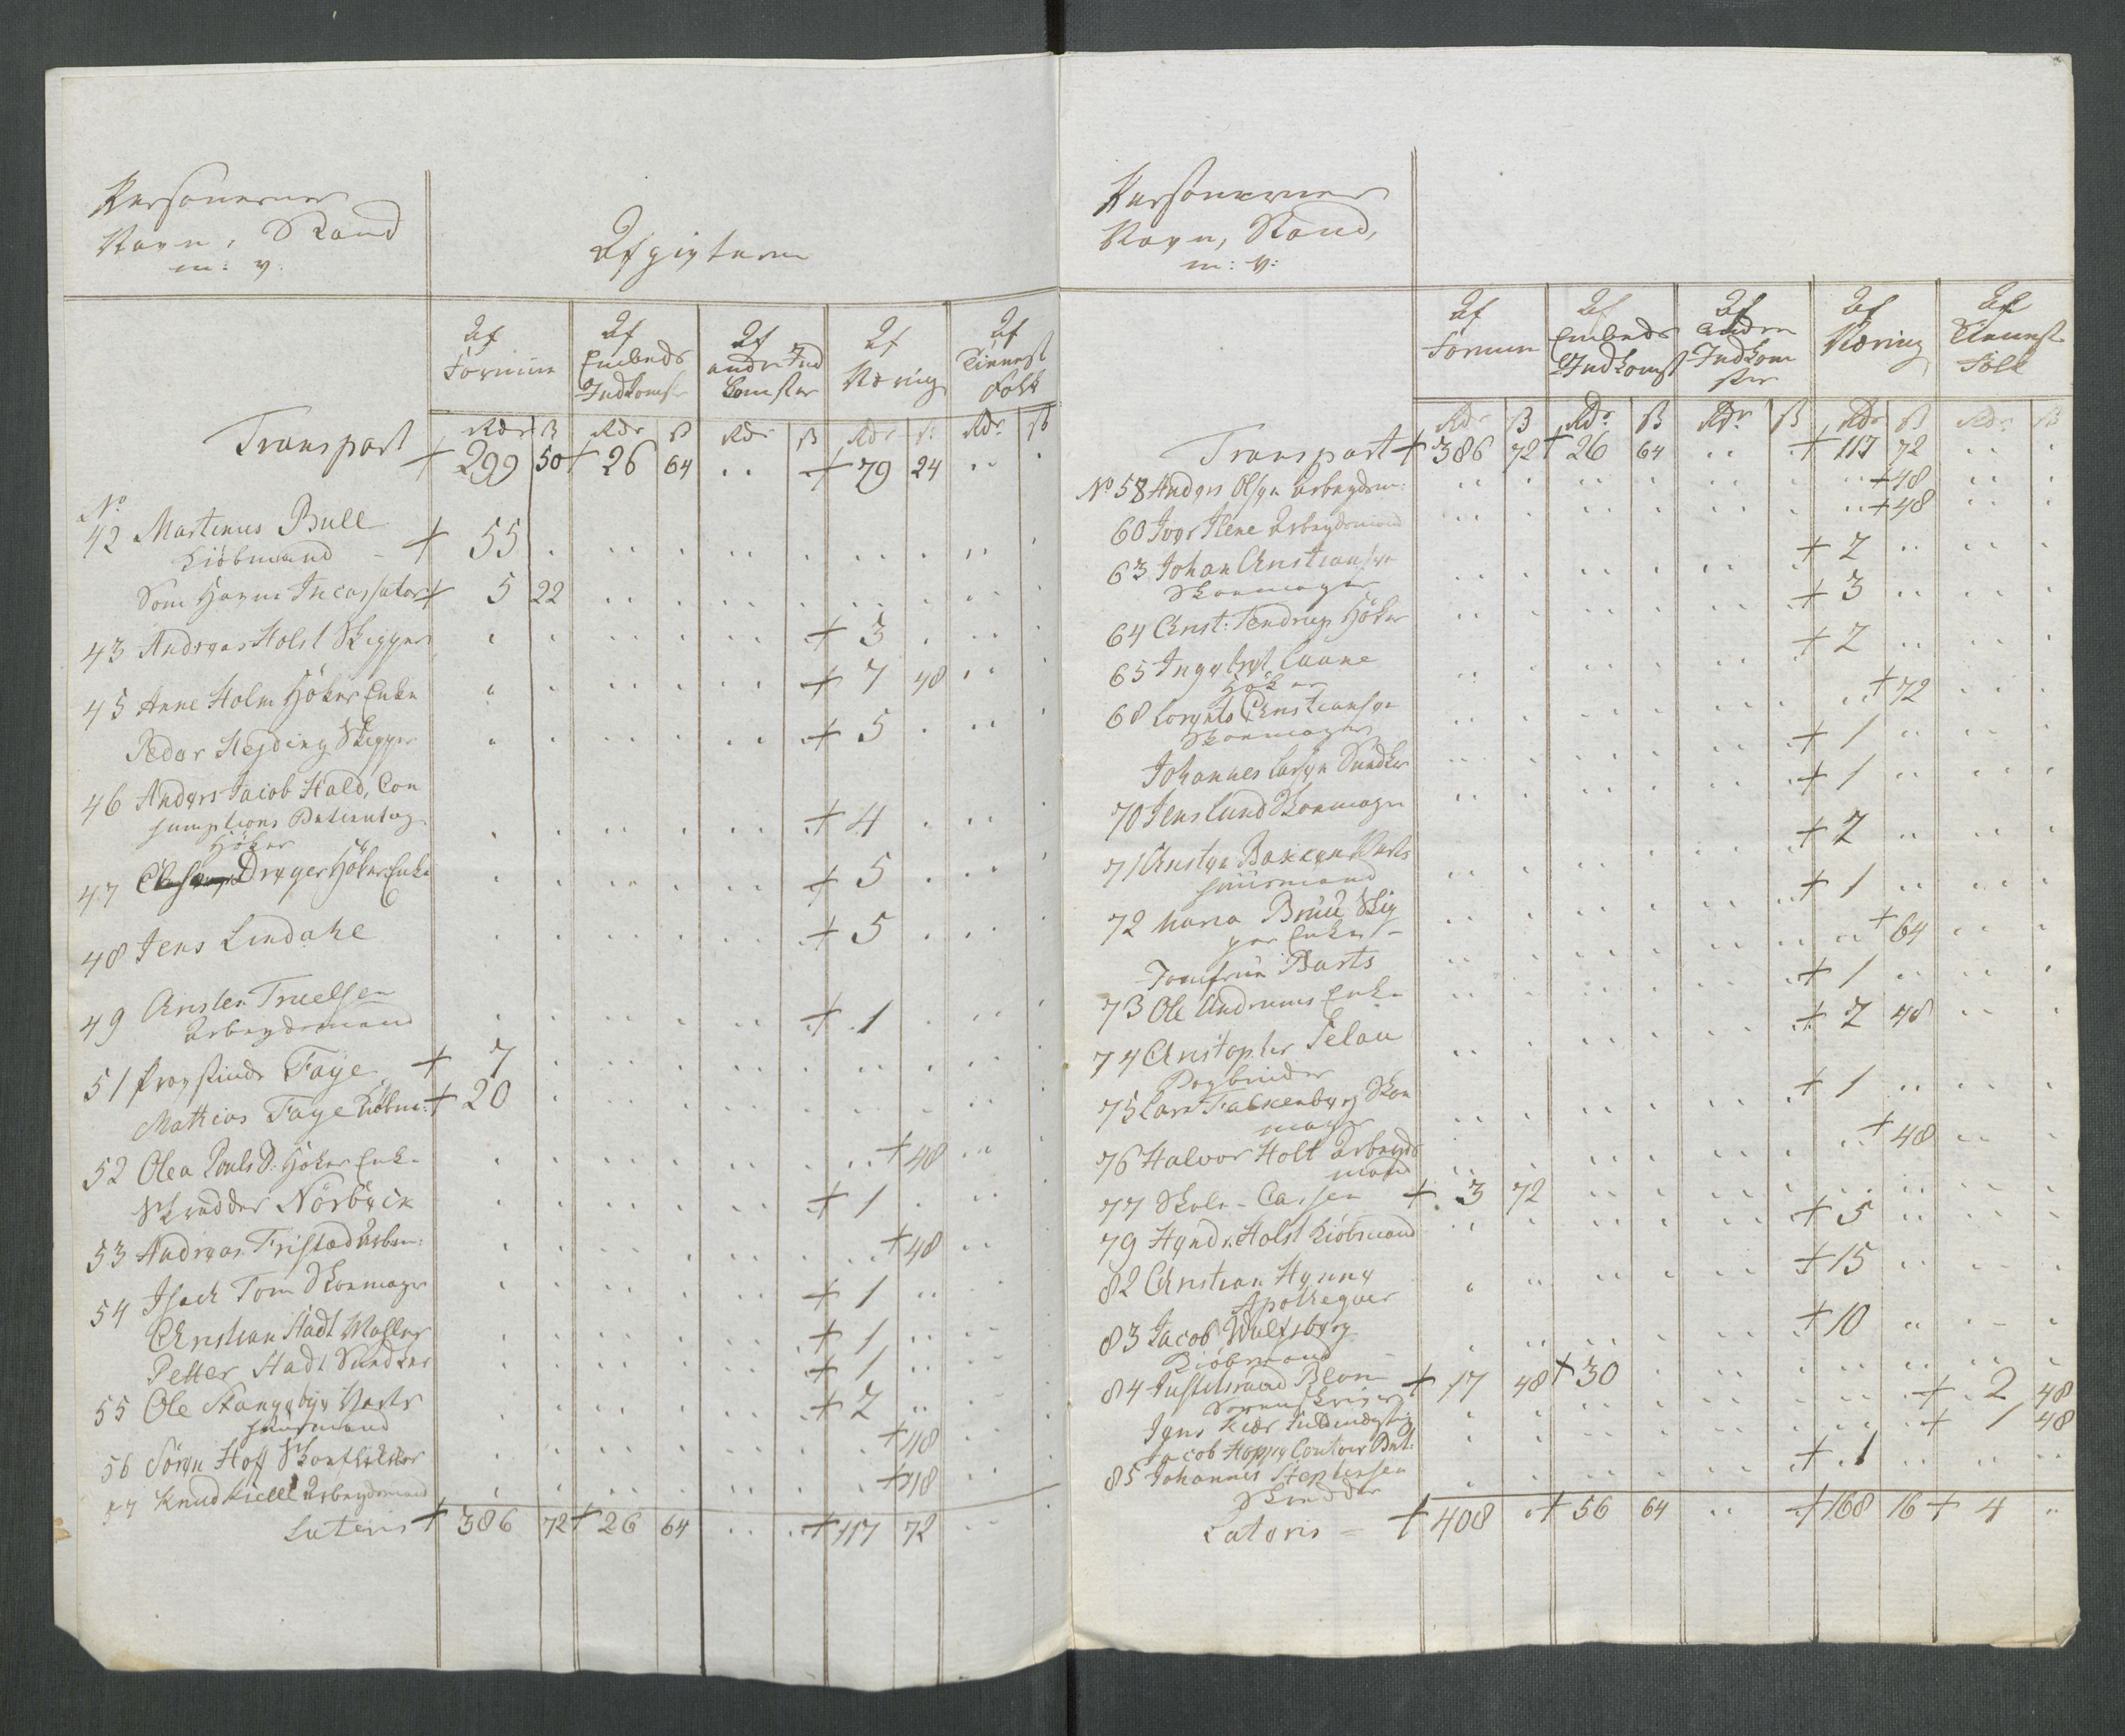 Personernes
Navn, Stand
m: v.
Afgivterne
Af Formue | Af Embeds Indkomst | Af andre Indkomster | Af Næring | Af Tienneste Folk
Rdr ß Rdr ß Rdr ß Rdr ß Rdr ß
Transport + 299 50 + 26 64 + 79 24
No
42 Martinus Bull
Kiöbmand + 55
Som Havne Incassator + 5 22
43 Andreas Holst Skipper + 3
45 Anne Holm Höker Enke + 7 48
Peder Hejding Skipper + 5
46 Anders Jacob Hald, Con
sumptions Betient og
Höker + 4
47 Dreyer Höker Enke + 5
48 Jens Lindahl + 5
49 Christen Truelsen
Arbeydsmand + 1
51 Provstinde Faye + 7
Mathias Faye Kiöbm: + 20
52 Olea Pouls D: Höker Enke + 48
Skredder Nörbÿck + 1
53 Andreas Fristad Arbm: + 48
54 Isach Tom Skoemager + 1
Christian Stadt Mahler + 1
Petter Stadt Snedker + 1
55 Ole Stangebye Verts
huusmand + 2
56 Sören Hoff Skoeflikker + 48
57 Knud Kield Arbeydsmand + 48
Lateris + 386 72 + 26 64 + 117 72
Personernes
Navn, Stand,
m: v:
Af Formue | Af Embeds Indkomst | Af Andre Indkomster | Af Næring | Af Tienneste Folk
Rdr ß Rdr ß Rdr ß Rdr ß Rdr ß
Transport + 386 72 + 26 64 + 117 72
No 58 Anders Olsen Arbeydsm: + 48
60 Iver Arbeydsmand + 48
63 Johan Christiansen
Skoemager + 2
64 Christ: Tendrup Höker + 3
65 Ingebret Laane
Höker + 2
68 Lorents Christiansen
Skoemager + 72
Johannes Larsen Snedker + 1
70 Jens Lund Skoemager + 1
71 Christen Bakken Verts
huusmand + 2
72 Maria Bruu Skip
per Enke + 1
Jomfrue Barts + 64
73 Ole Andrums Enke + 1
74 Christopher Pelau
Bogbinder + 2 48
75 Lars Falkenberg Skoe
mager + 1
76 Halvor Holt Arbeyds
mand + 48
77 Skole-Cassen + 3 72
79 Hendr. Holst Kiöbmand + 5
82 Christian Henne
Apotheqver + 15
83 Jacob Wulfsberg
Kiöbmand + 10
84 Justitsraad Blom
Sorenskriver + 17 48 + 30
Jens Kiær Fuldmægtig + 2 48
Jacob Hoppe Contoir Bet: + 1 48
85 Johannes Stephensen
Skredder + 1
Lateris + 408 + 56 64 + 168 16 + 4